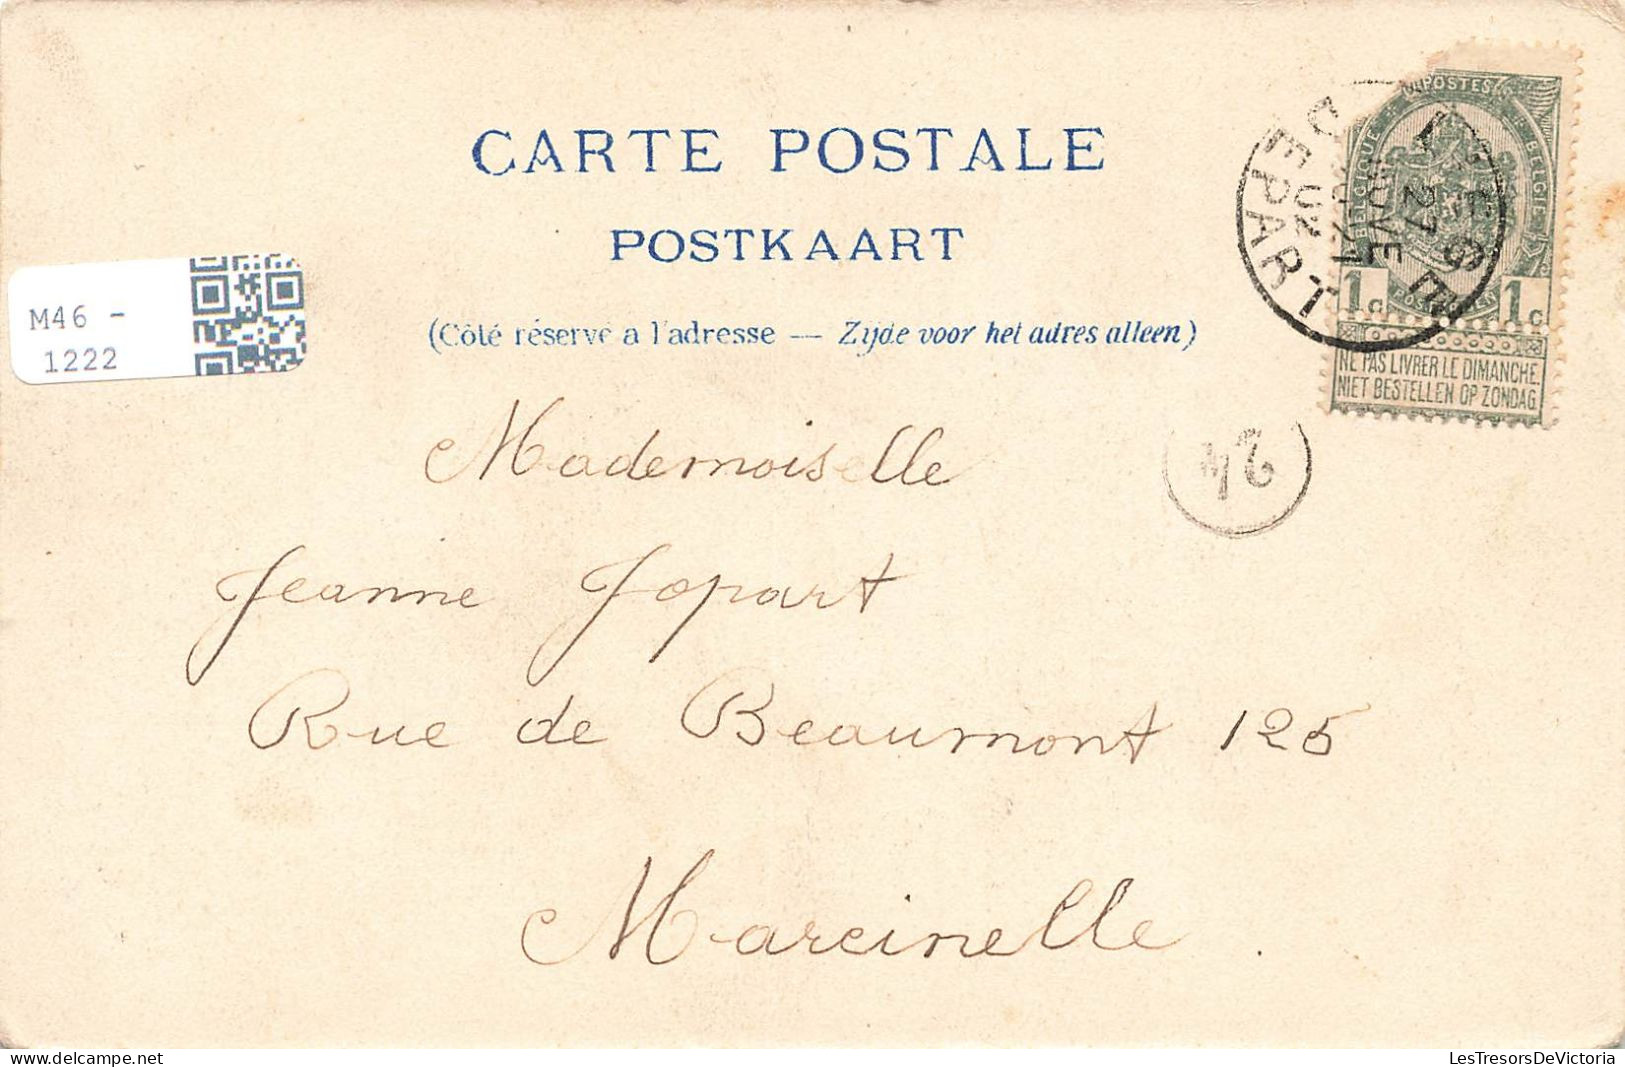 CARTE POSTALE
POSTKAART
(Côté réservé a l'adresse — Zijde voor het adres alleen)
M46 -
1222
POSTES
BELGIQUE
BELGIE
1c 1c
NE PAS LIVRER LE DIMANCHE.
NIET BESTELLEN OP ZONDAG
LIEGE
27
NOVE
02
DEPART
24
Mademoiselle
Jeanne Jopart
Rue de Beaumont 125
Marcinelle .
LesTresorsDeVictoria
delcampe.net